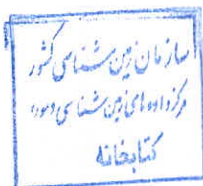 سازمان زمین شناسی کشور
مرکز داده های زمین شناسی
کتابخانه